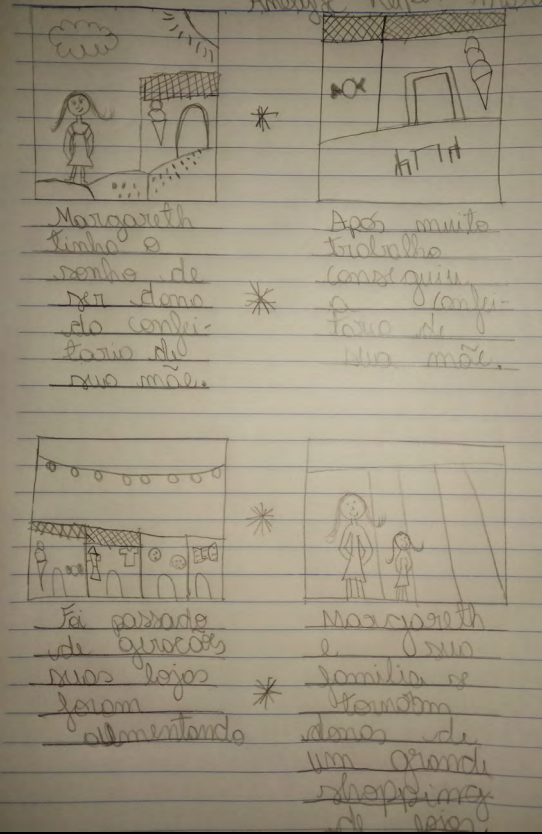 Margareth
tinha o
sonho de
ser dona
da confei-
taria de
sua mãe.
Após muito
trabalho
conseguiu,
a confei-
taria de
sua mãe.
Foi passado
de giracões
suas lojas
foram
aumentando
Margareth
e sua
familia se
tornam
donas de
um grande
shopping
de lojas